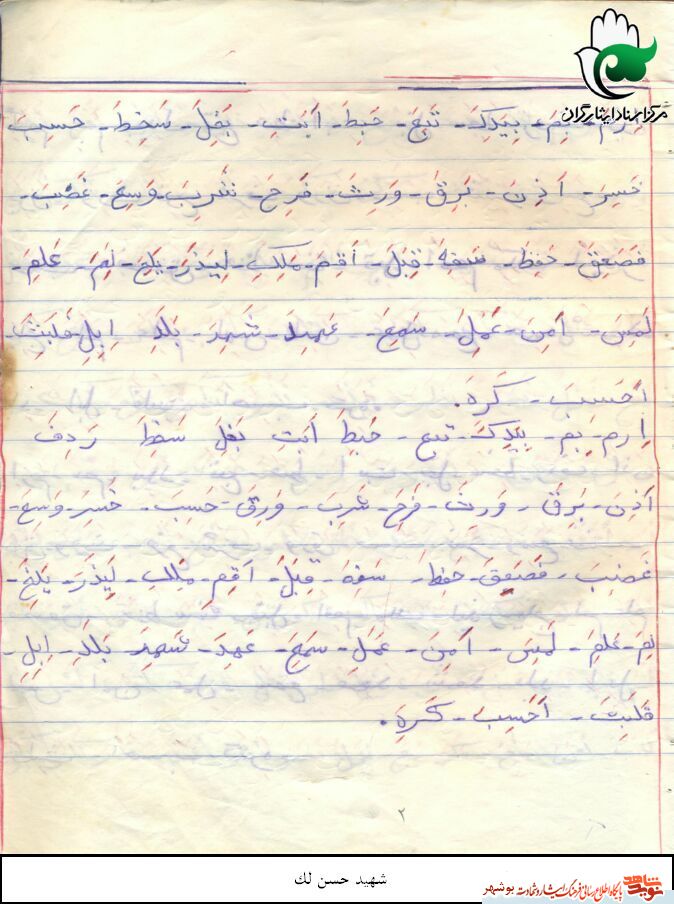 مرکز اسناد ایثارگران
اِرَم - بِمَ - بِیَدِکَ - تَبِعَ - حَبِطَ - اَبَتِ - بَغِلَ - سَخِطَ - حَسِبَ
خَسِرَ - اَذِنَ - بَرِقَ - وَرِثَ - فَرِحَ - شَرِبَ - وَسِعَ - غَضِبَ -
فَصَعِقَ - حَفِظَ - سَفِهَ - قِبَلَ - اَقِمِ - مَلِکِ - لِیَذَرَ - یَلِجَ - لِمَ - عَلِمَ -
لَمِسَ - اَمِنَ - عَمِلَ - سَمِعَ - عَهِدَ - شَهِدَ - بَلَدِ اِبِلِ - فَلَبِثَ
اَحَسِبَ - کَرِهَ.
اِرَم - بِمَ - بِیَدِکَ - تَبِعَ - حَبِطَ اَبَتِ بَغِلَ سَخِطَ رَدِفَ
اَذِنَ - بَرِقَ - وَرِثَ - فَرِحَ - شَرِبَ - وَرِقَ - حَسِبَ - خَسِرَ - وَسِعَ -
غَضِبَ - فَصَعِقَ - حَفِظَ - سَفِهَ - قِبَلَ - اَقِمِ - مَلِکِ - لِیَذَرَ - یَلِجَ -
لِمَ - عَلِمَ - لَمِسَ - اَمِنَ - عَمِلَ - سَمِعَ - عَهِدَ - شَهِدَ بَلَدِ - اِبِلِ -
فَلَبِثَ - اَحَسِبَ - کَرِهَ.
۲
شهید حسن لك
نوید شاهد پایگاه اطلاع رسانی فرهنگ ایثار و شهادت بوشهر